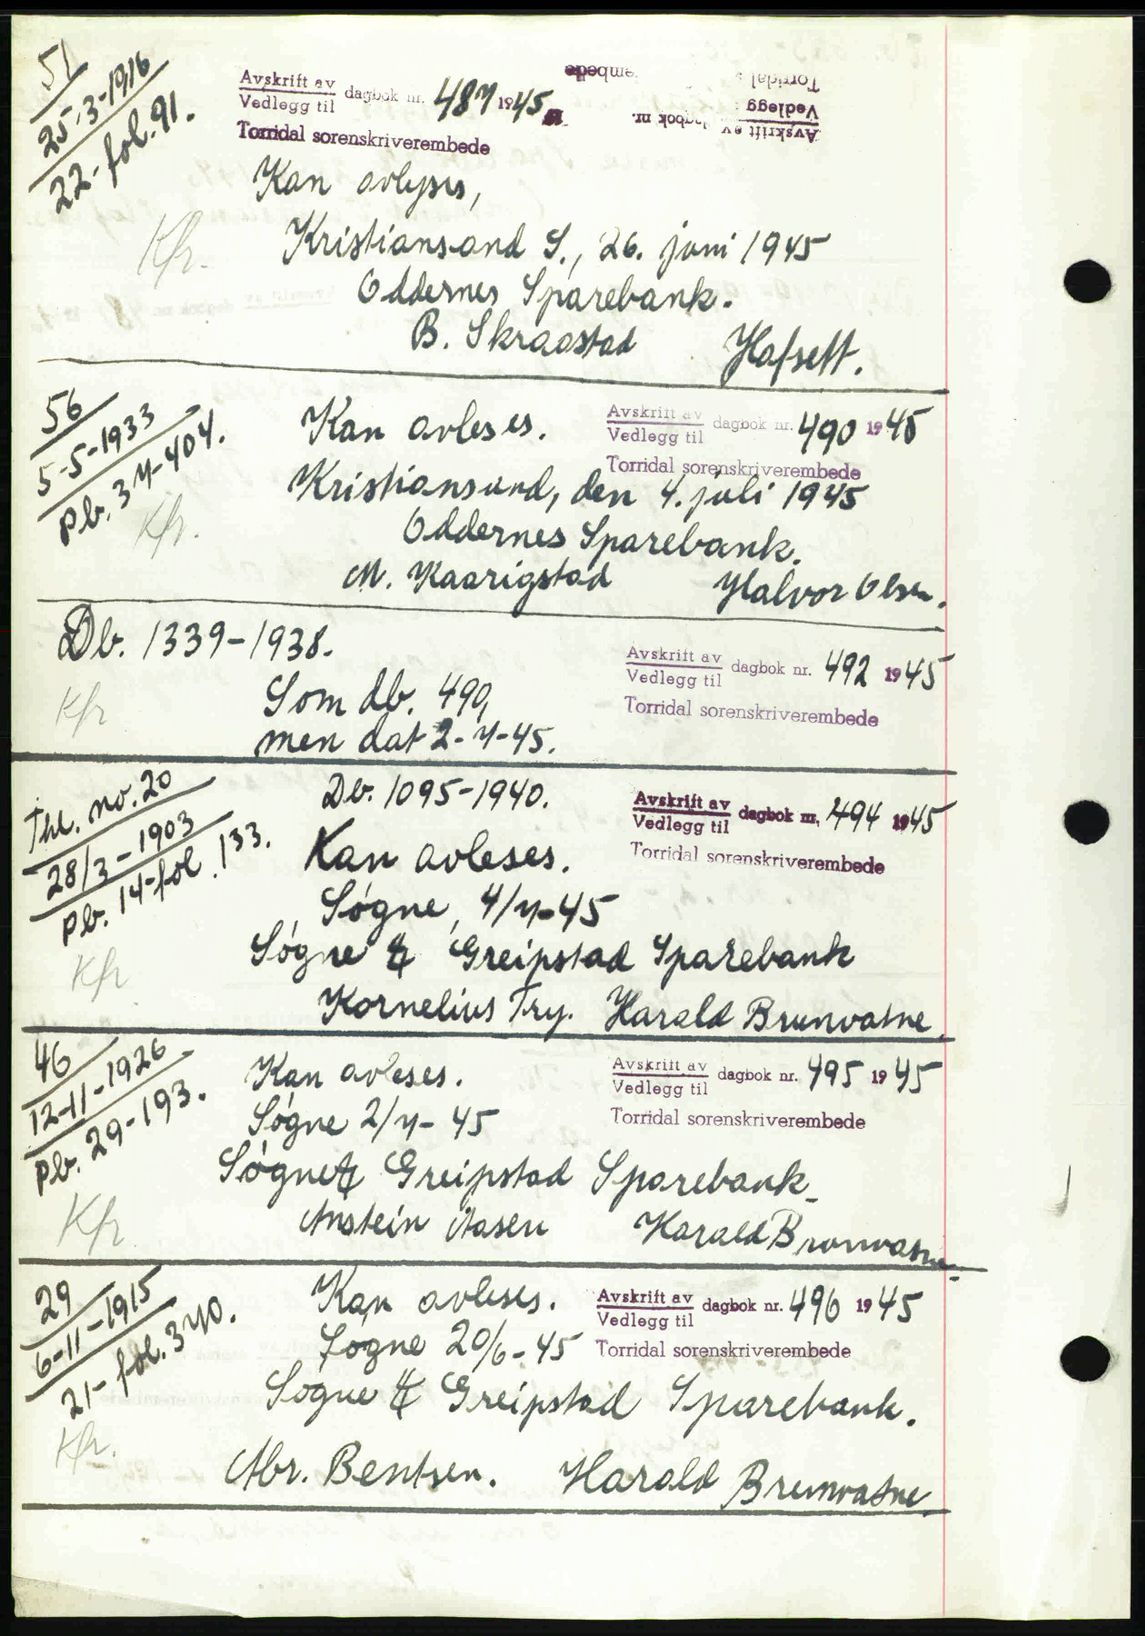 51
25-3-1916
22-fol. 91.
Avskrift av
Vedlegg til dagbok nr. 487 1945
Torridal sorenskriverembede
Kan avlyses,
Kristiansand S., 26. juni 1945
Oddernes Sparebank.
B. Skraastad Hafsett.
Kfr.
56
5-5-1933
Pb. 37-404.
Kan avleses.
Avskrift av
Vedlegg til dagbok nr. 490 1945
Torridal sorenskriverembede
Kristiansand, den 4. juli 1945
Oddernes Sparebank.
M. Kaarigstad Halvor Olsen.
Kfr.
Db. 1339-1938.
Avskrift av
Vedlegg til dagbok nr. 492 1945
Torridal sorenskriverembede
Som db. 490,
men dat 2-7-45.
Kfr
Thl. no. 20
28/3-1903
Pb. 14-fol. 133.
Db. 1095-1940.
Avskrift av
Vedlegg til dagbok nr. 494 1945
Torridal sorenskriverembede
Kan avleses.
Søgne, 4/7-45
Søgne & Greipstad Sparebank
Kornelius Try. Harald Brunvatne.
Kfr
46
12-11-1926
Pb. 29-193.
Kan avleses.
Avskrift av
Vedlegg til dagbok nr. 495 1945
Torridal sorenskriverembede
Søgne 2/7-45
Søgne & Greipstad Sparebank
Anstein Aasen Harald Brunvatne
Kfr
29
6-11-1915
21-fol. 370.
Kan avleses.
Avskrift av
Vedlegg til dagbok nr. 496 1945
Torridal sorenskriverembede
Søgne 20/6-45
Søgne & Greipstad Sparebank.
Abr. Bentsen. Harald Brunvatne.
Kfr.